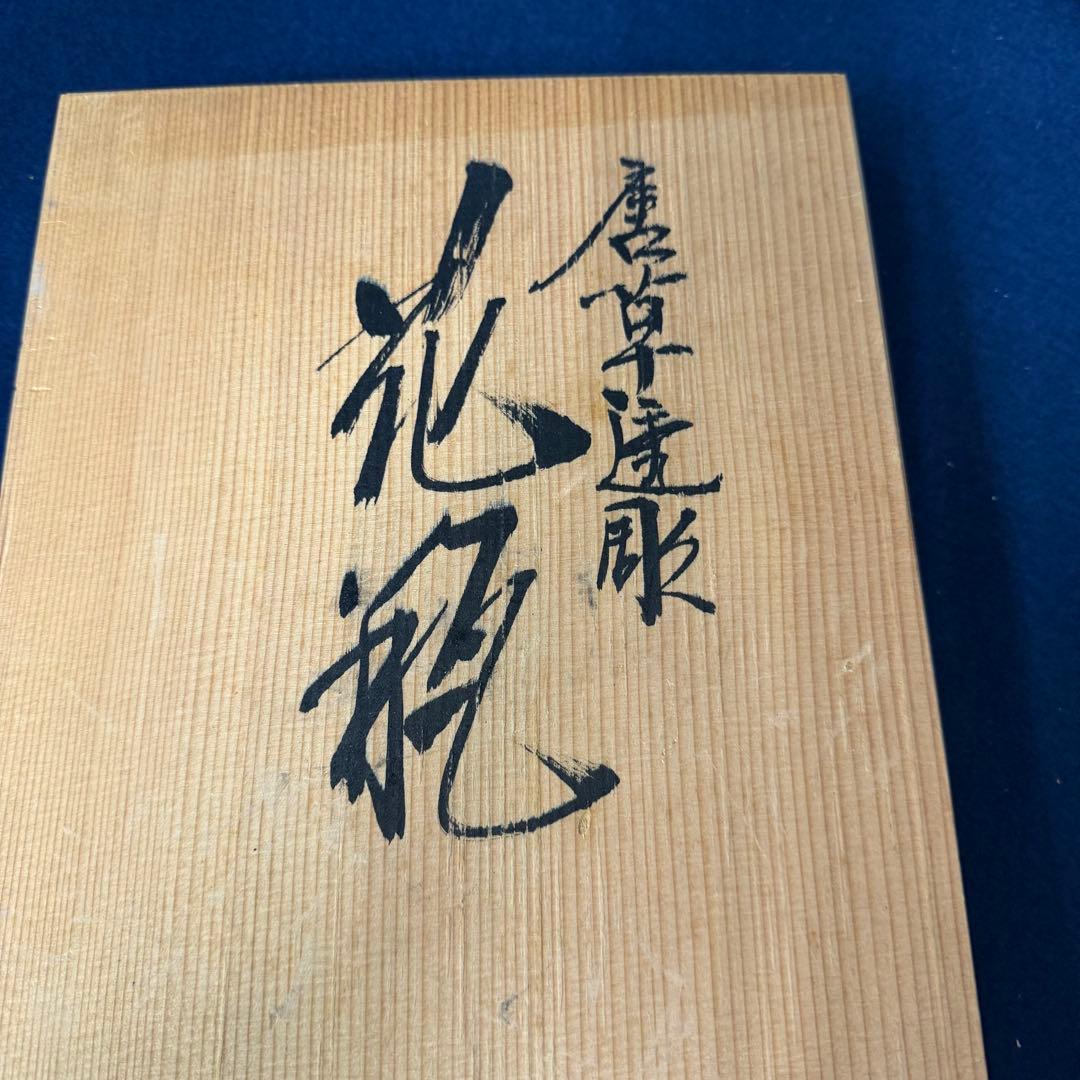 唐草透彫
花瓶